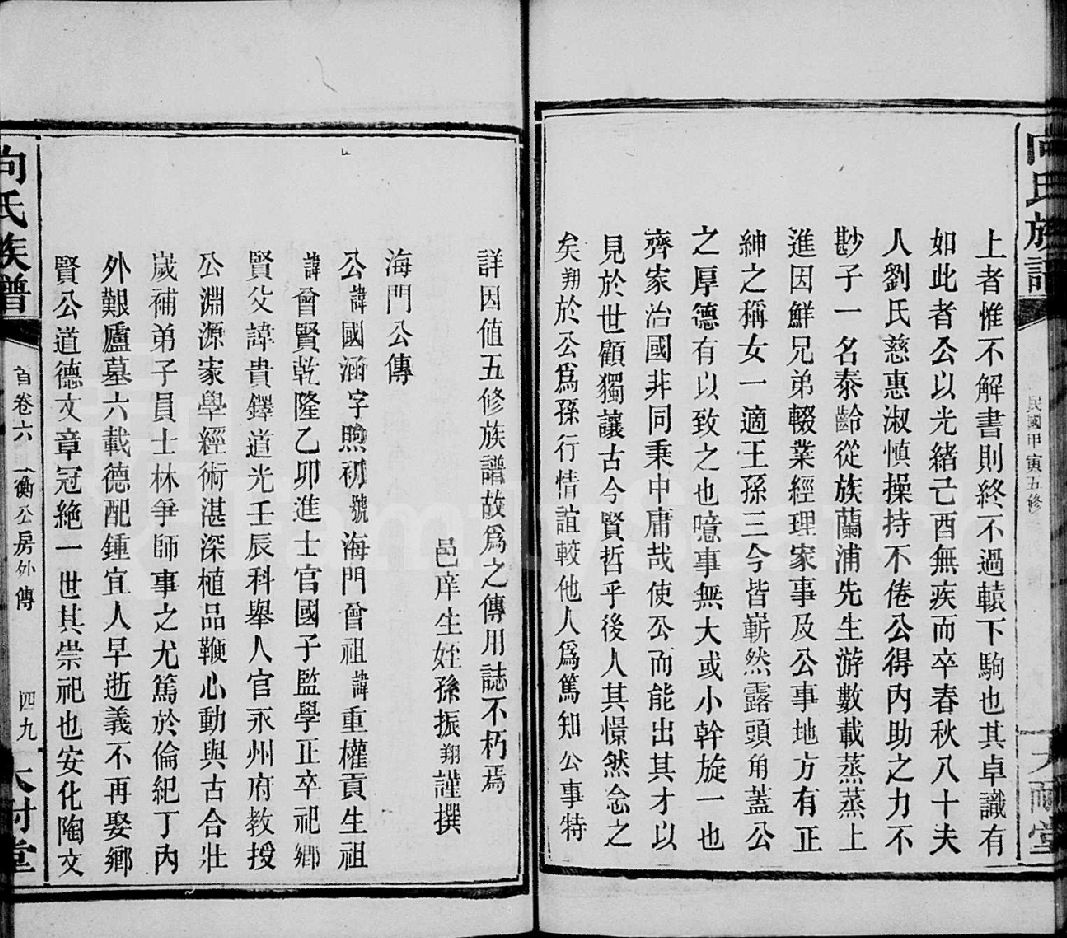 向氏族譜
民國甲寅五修
大耐堂
上者惟不解書則終不過轅下駒也其卓識有
如此者公以光緒己酉無疾而卒春秋八十夫
人劉氏慈惠淑慎操持不倦公得內助之力不
尠子一名泰齡從族蘭浦先生游數載蒸蒸上
進因鮮兄弟輟業經理家事及公事地方有正
紳之稱女一適王孫三今皆嶄然露頭角蓋公
之厚德有以致之也噫事無大或小幹旋一也
齊家治國非同乘中庸哉使公而能出其才以
見於世顧獨讓古今賢哲乎後人其憬然念之
矣翔於公爲孫行情誼較他人爲篤知公事特
詳因值五修族譜故爲之傳用誌不朽焉
邑庠生姪孫振翔謹撰
海門公傳
公諱國涵字煦初號海門曾祖諱重權貢生祖
諱曾賢乾隆乙卯進士官國子監學正卒祀鄉
賢父諱貴鐸道光壬辰科舉人官永州府教授
公淵源家學經術湛深植品鞭心動與古合壯
歲補弟子員士林爭師事之尤篤於倫紀丁內
外艱廬墓六載德配鍾宜人早逝義不再娶鄉
賢公道德文章冠絕一世其崇祀也安化陶文
向氏族譜
首卷六
一衡公房外傳
四九
大耐堂